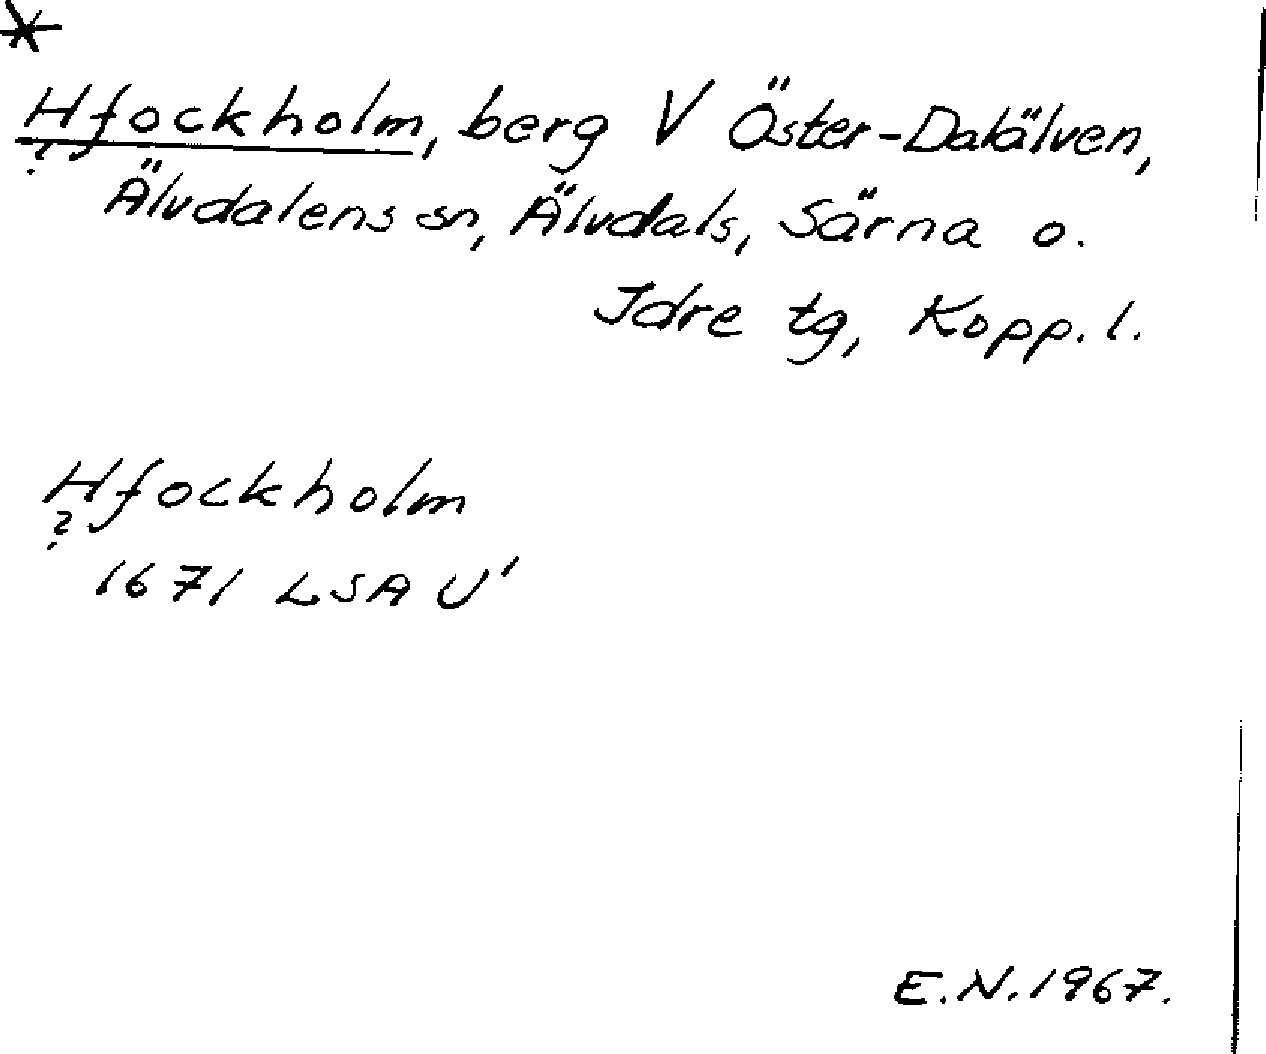 *
Hfockholm, berg V Öster-Dalälven,
?
Älvdalens sn, Älvdals, Särna o.
Idre tg, Kopp. l.
Hfockholm
?
1671 LSA U'
E.N. 1967.